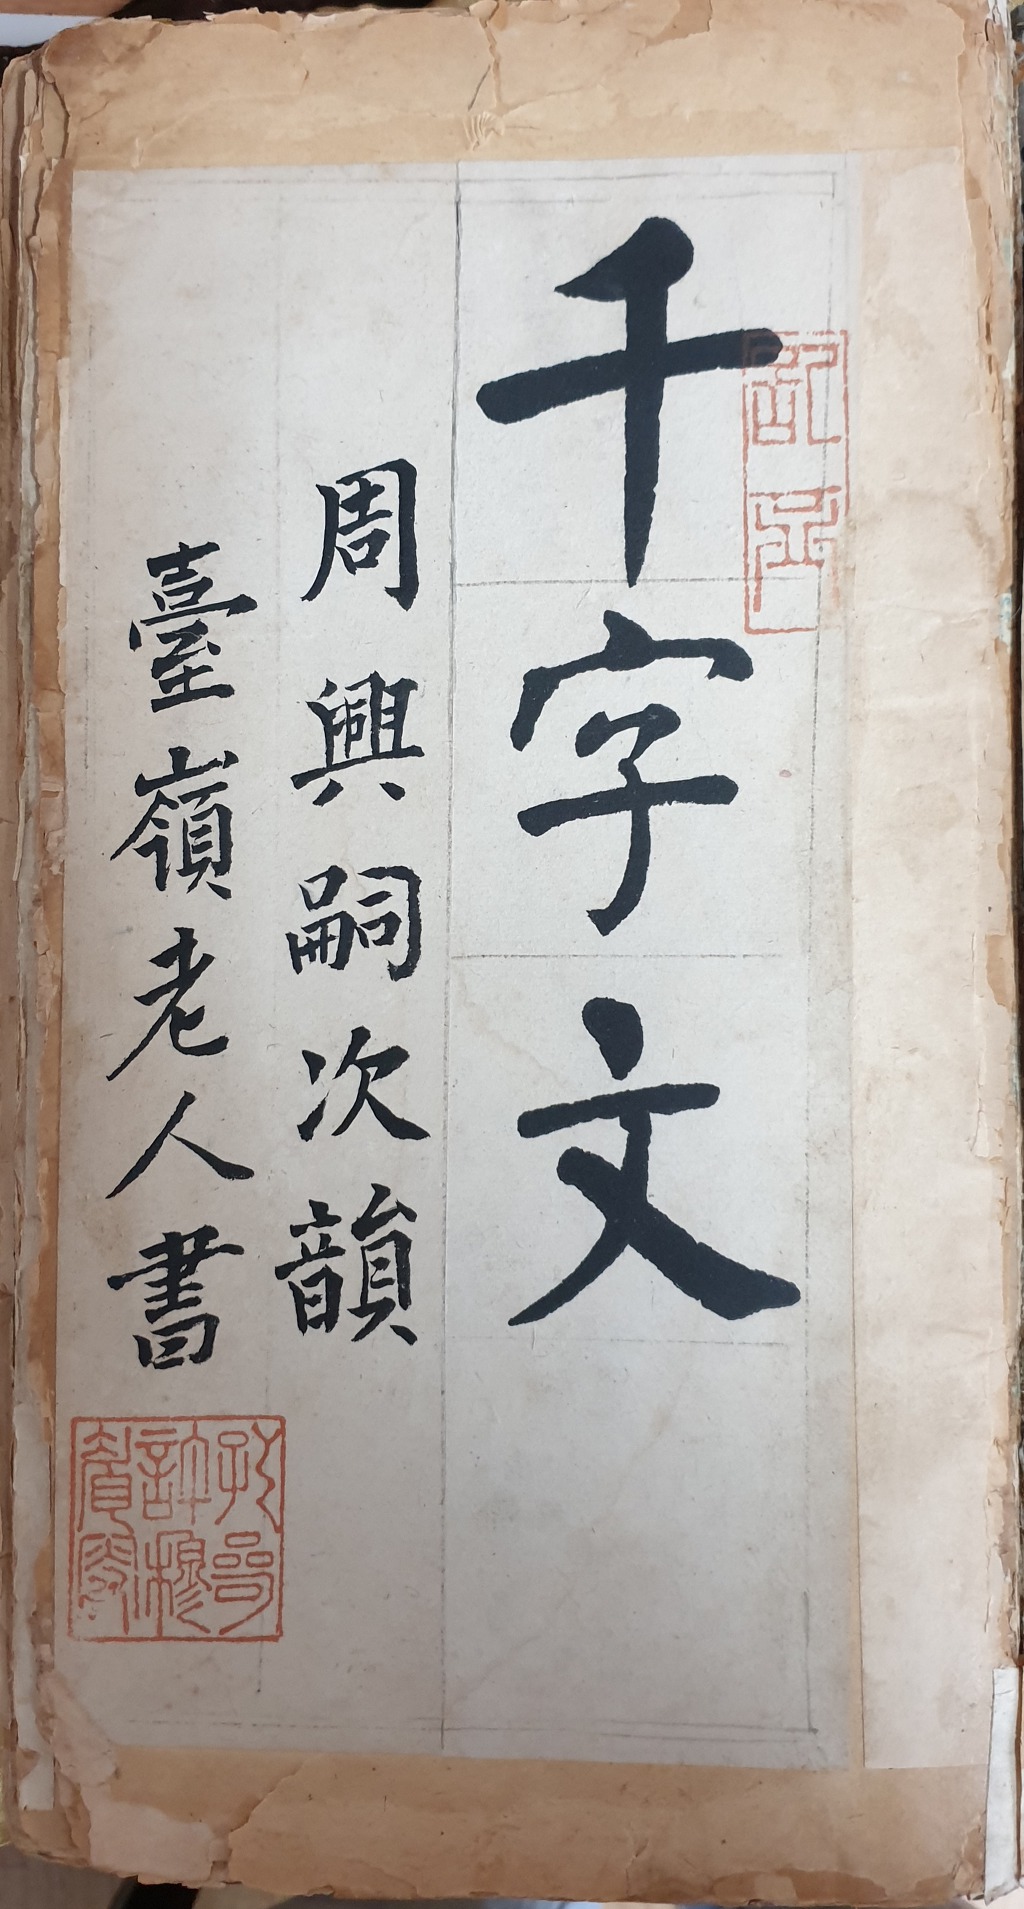 千字文
周興嗣次韻
臺嶺老人書